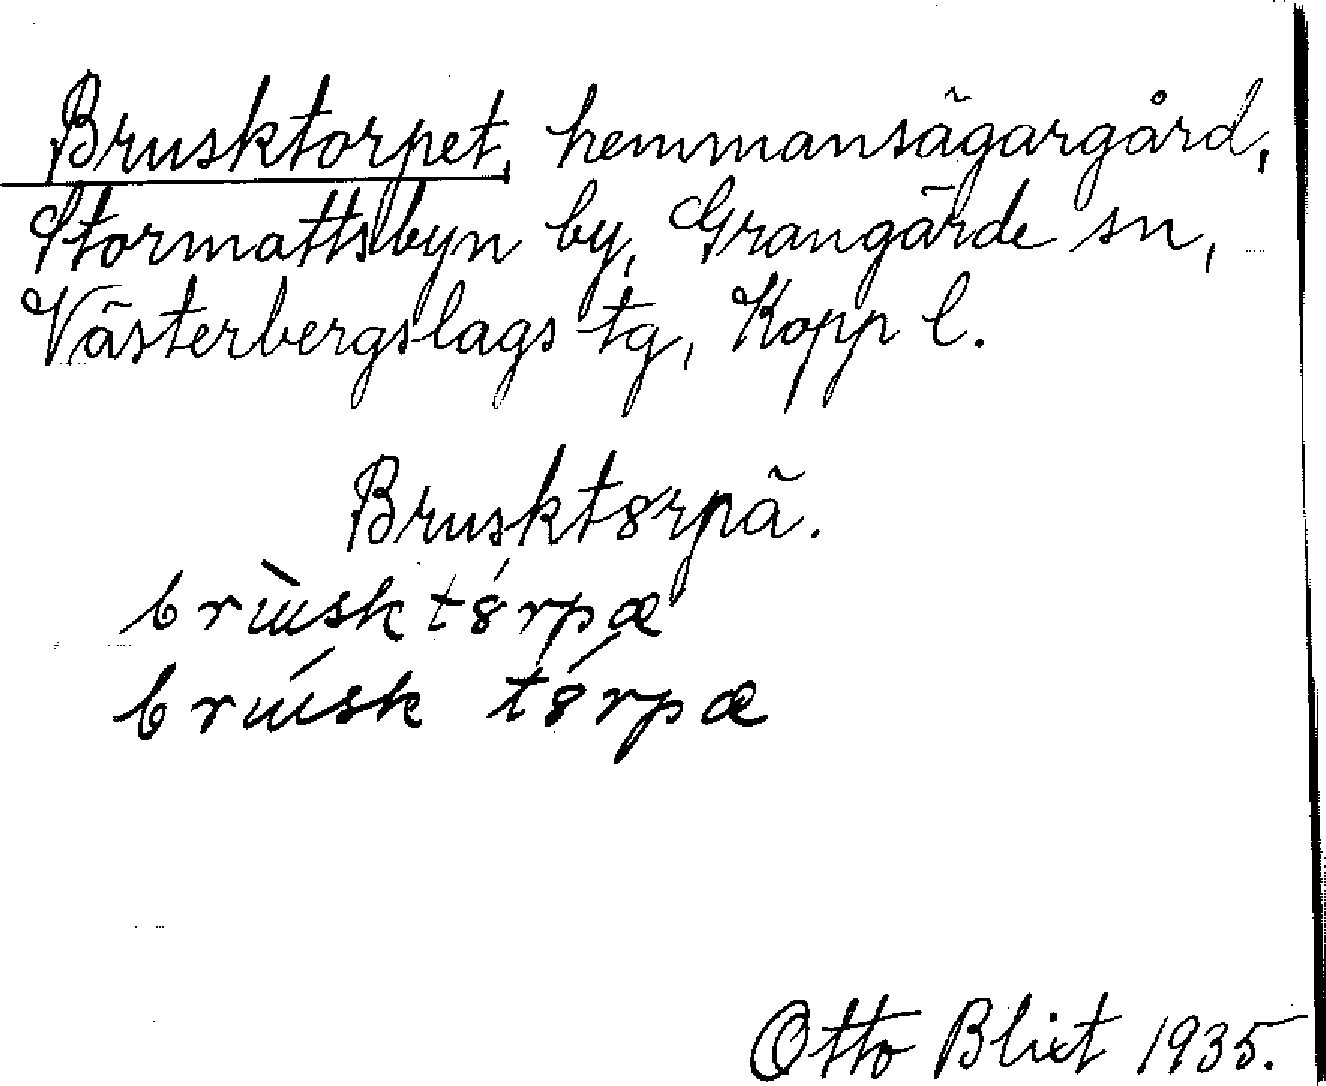 Brusktorpet, hemmansägargård,
Stormattsbyn by, Grangärde sn,
Västerbergslags tg, Kopp l.
Bruskt8rpä.
brùskt8́rpæ
brúsk t8́rpæ
Otto Blixt 1935.